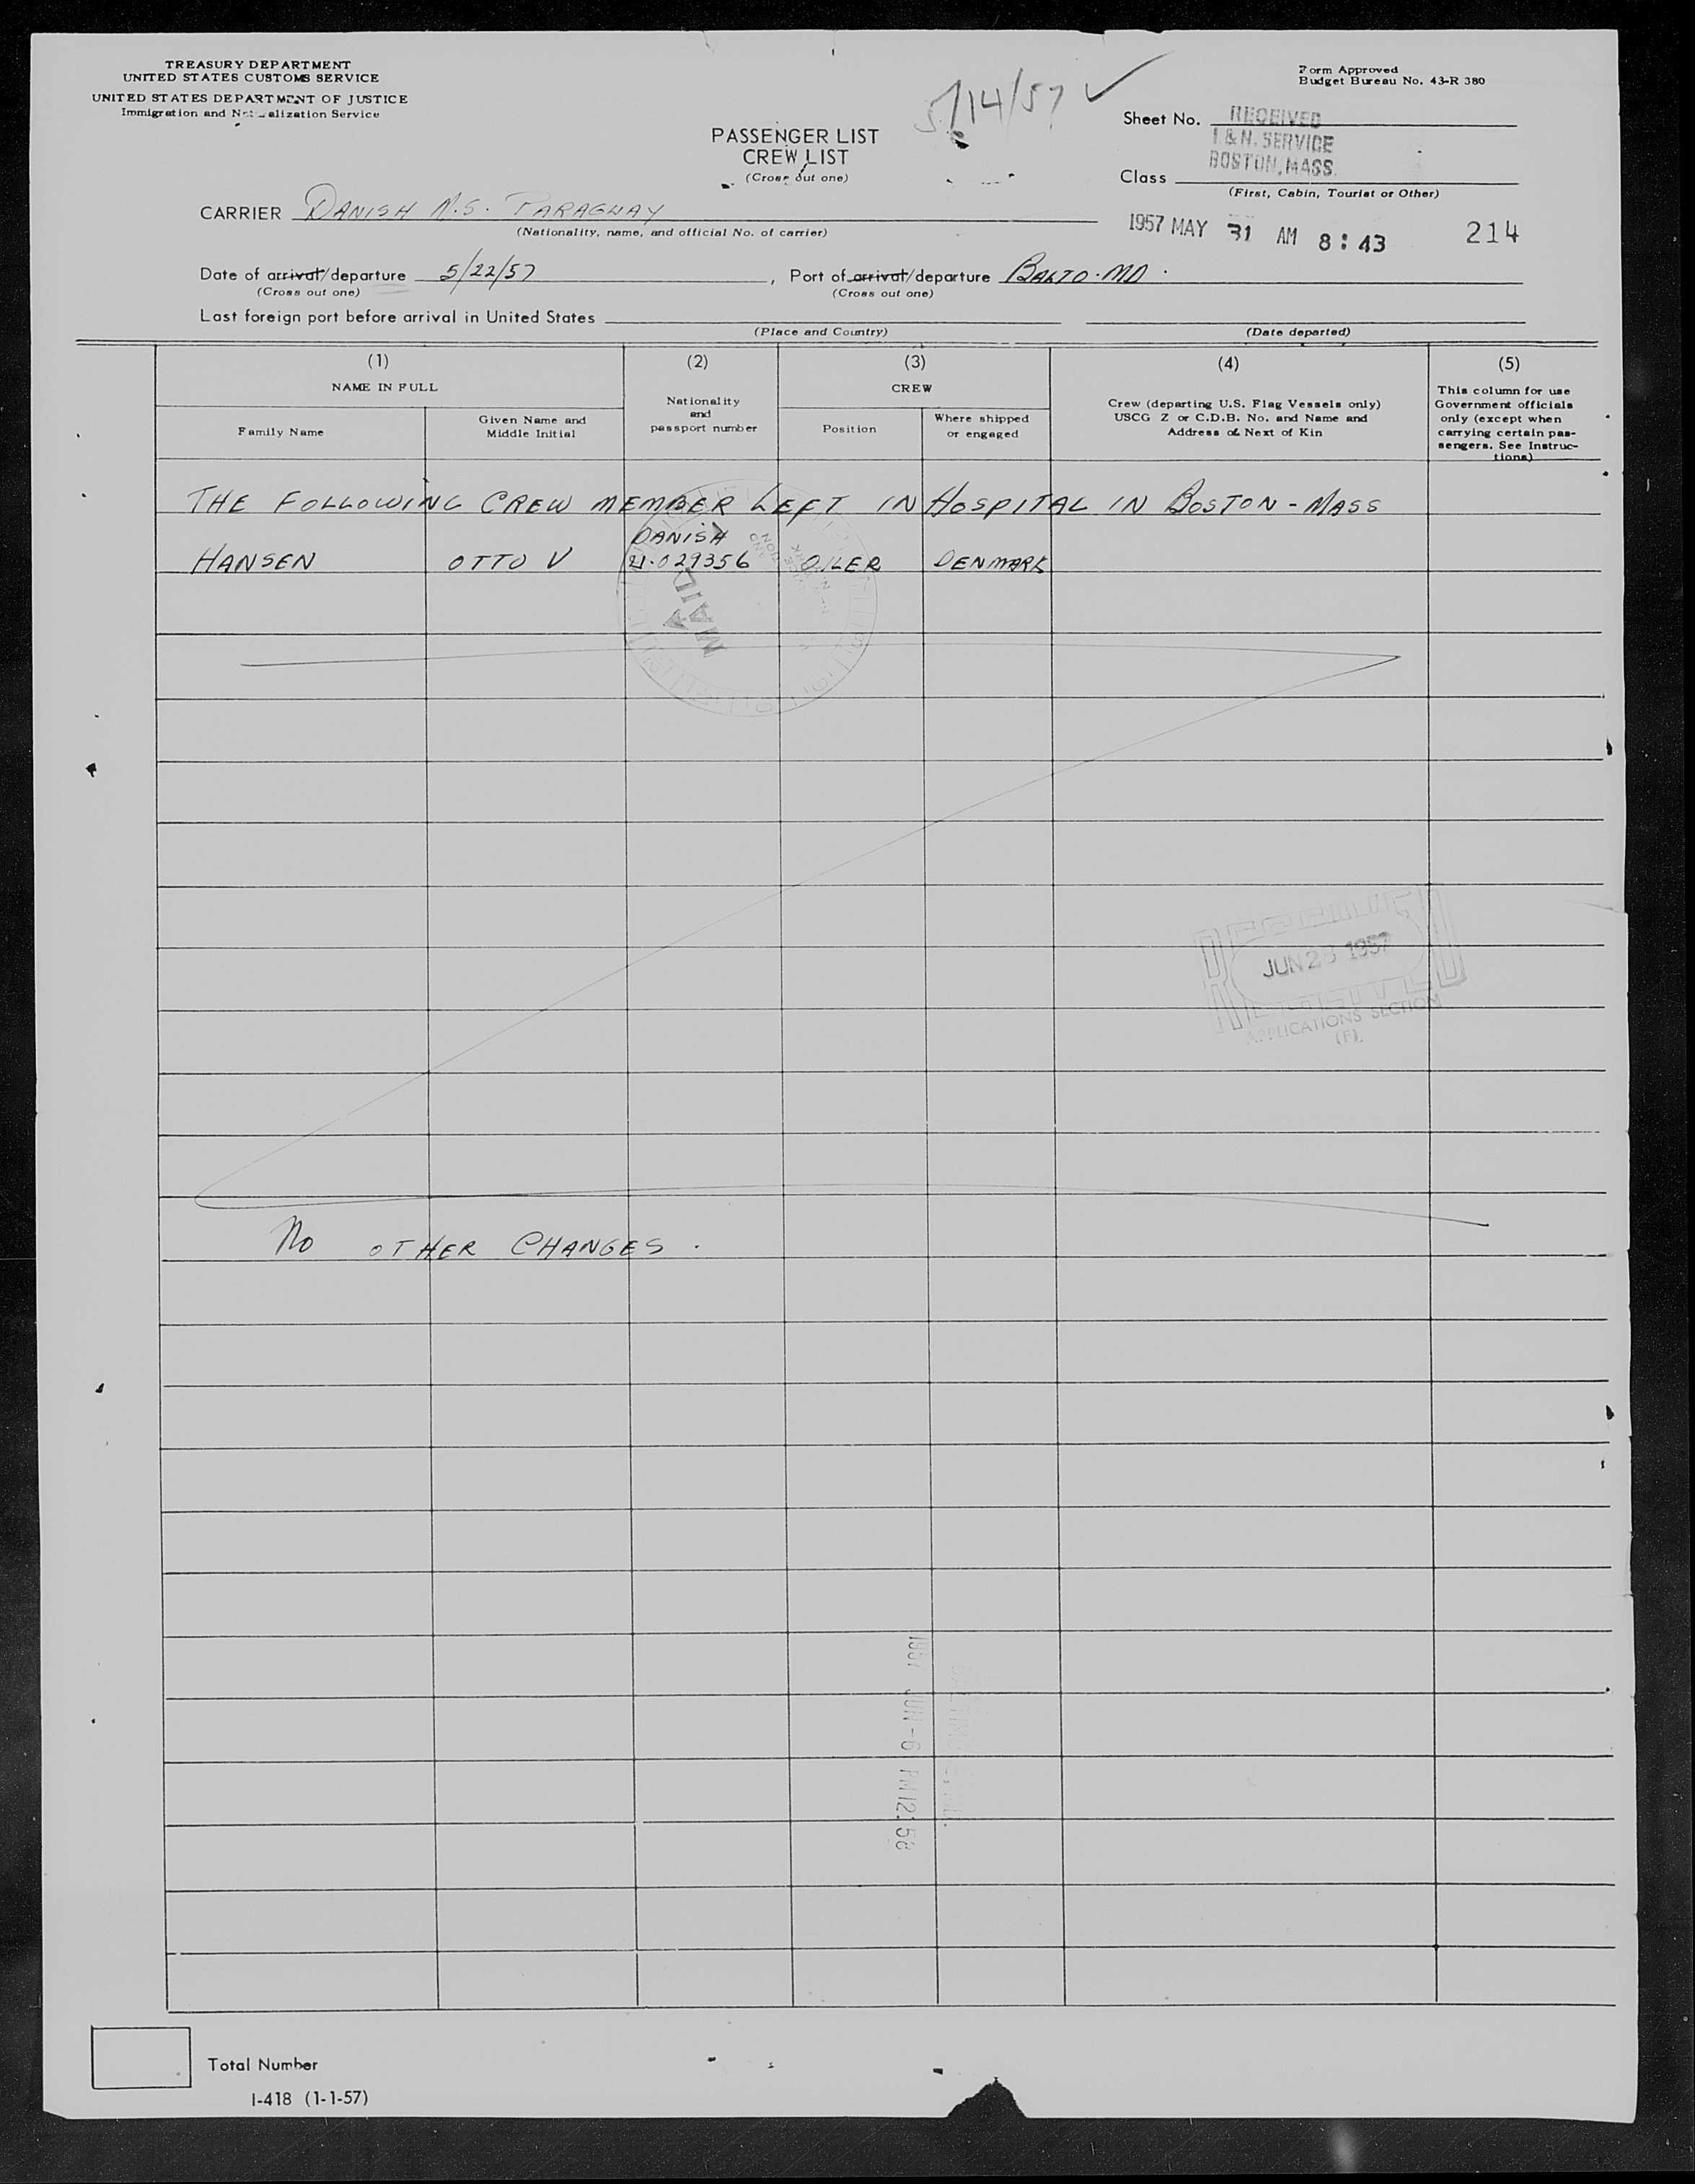 TREASURY DEPARTMENT
UNITED STATES CUSTOMS SERVICE
UNITED STATES DEPARTMENT OF JUSTICE
Immigration and Nat alization Service
Form Approved
Budget Bureau No. 43-R 380
5/14/57 ✓
PASSENGER LIST
CREW LIST
(Cross out one)
Sheet No.
RECEIVED
I. & N. SERVICE
BOSTON, MASS.
Class
(First, Cabin, Tourist or Other)
1957 MAY 31 AM 8:43
214
CARRIER DANISH M.S. PARAGUAY
(Nationality, name, and official No. of carrier)
Date of arrival/departure 5/22/57, Port of arrival/departure BALTO. MD.
(Cross out one) (Cross out one)
Last foreign port before arrival in United States
(Place and Country) (Date departed)
(1) (2) (3) (4) (5)
NAME IN FULL
Family Name
Given Name and
Middle Initial
Nationality
and
passport number
CREW
Position
Where shipped
or engaged
Crew (departing U.S. Flag Vessels only)
USCG Z or C.D.B. No. and Name and
Address of Next of Kin
This column for use
Government officials
only (except when
carrying certain pas-
sengers. See Instruc-
tions)
THE FOLLOWING CREW MEMBER LEFT IN HOSPITAL IN BOSTON - MASS
DANISH
HANSEN OTTO V 21.029356 OILER DENMARK
MAID
JUN 1957
RECEIVED
APPLICATIONS SECTION
(F)
NO OTHER CHANGES.
1957 JUN -6 PM 12:58
Total Number
I-418 (1-1-57)